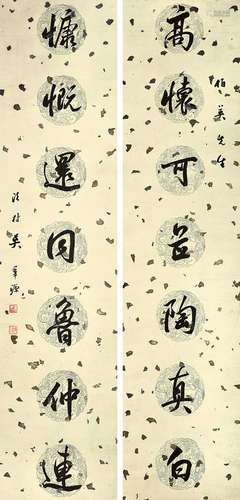 高懷可陶真白
慷慨還同魯仲連
伯先生
吳華源